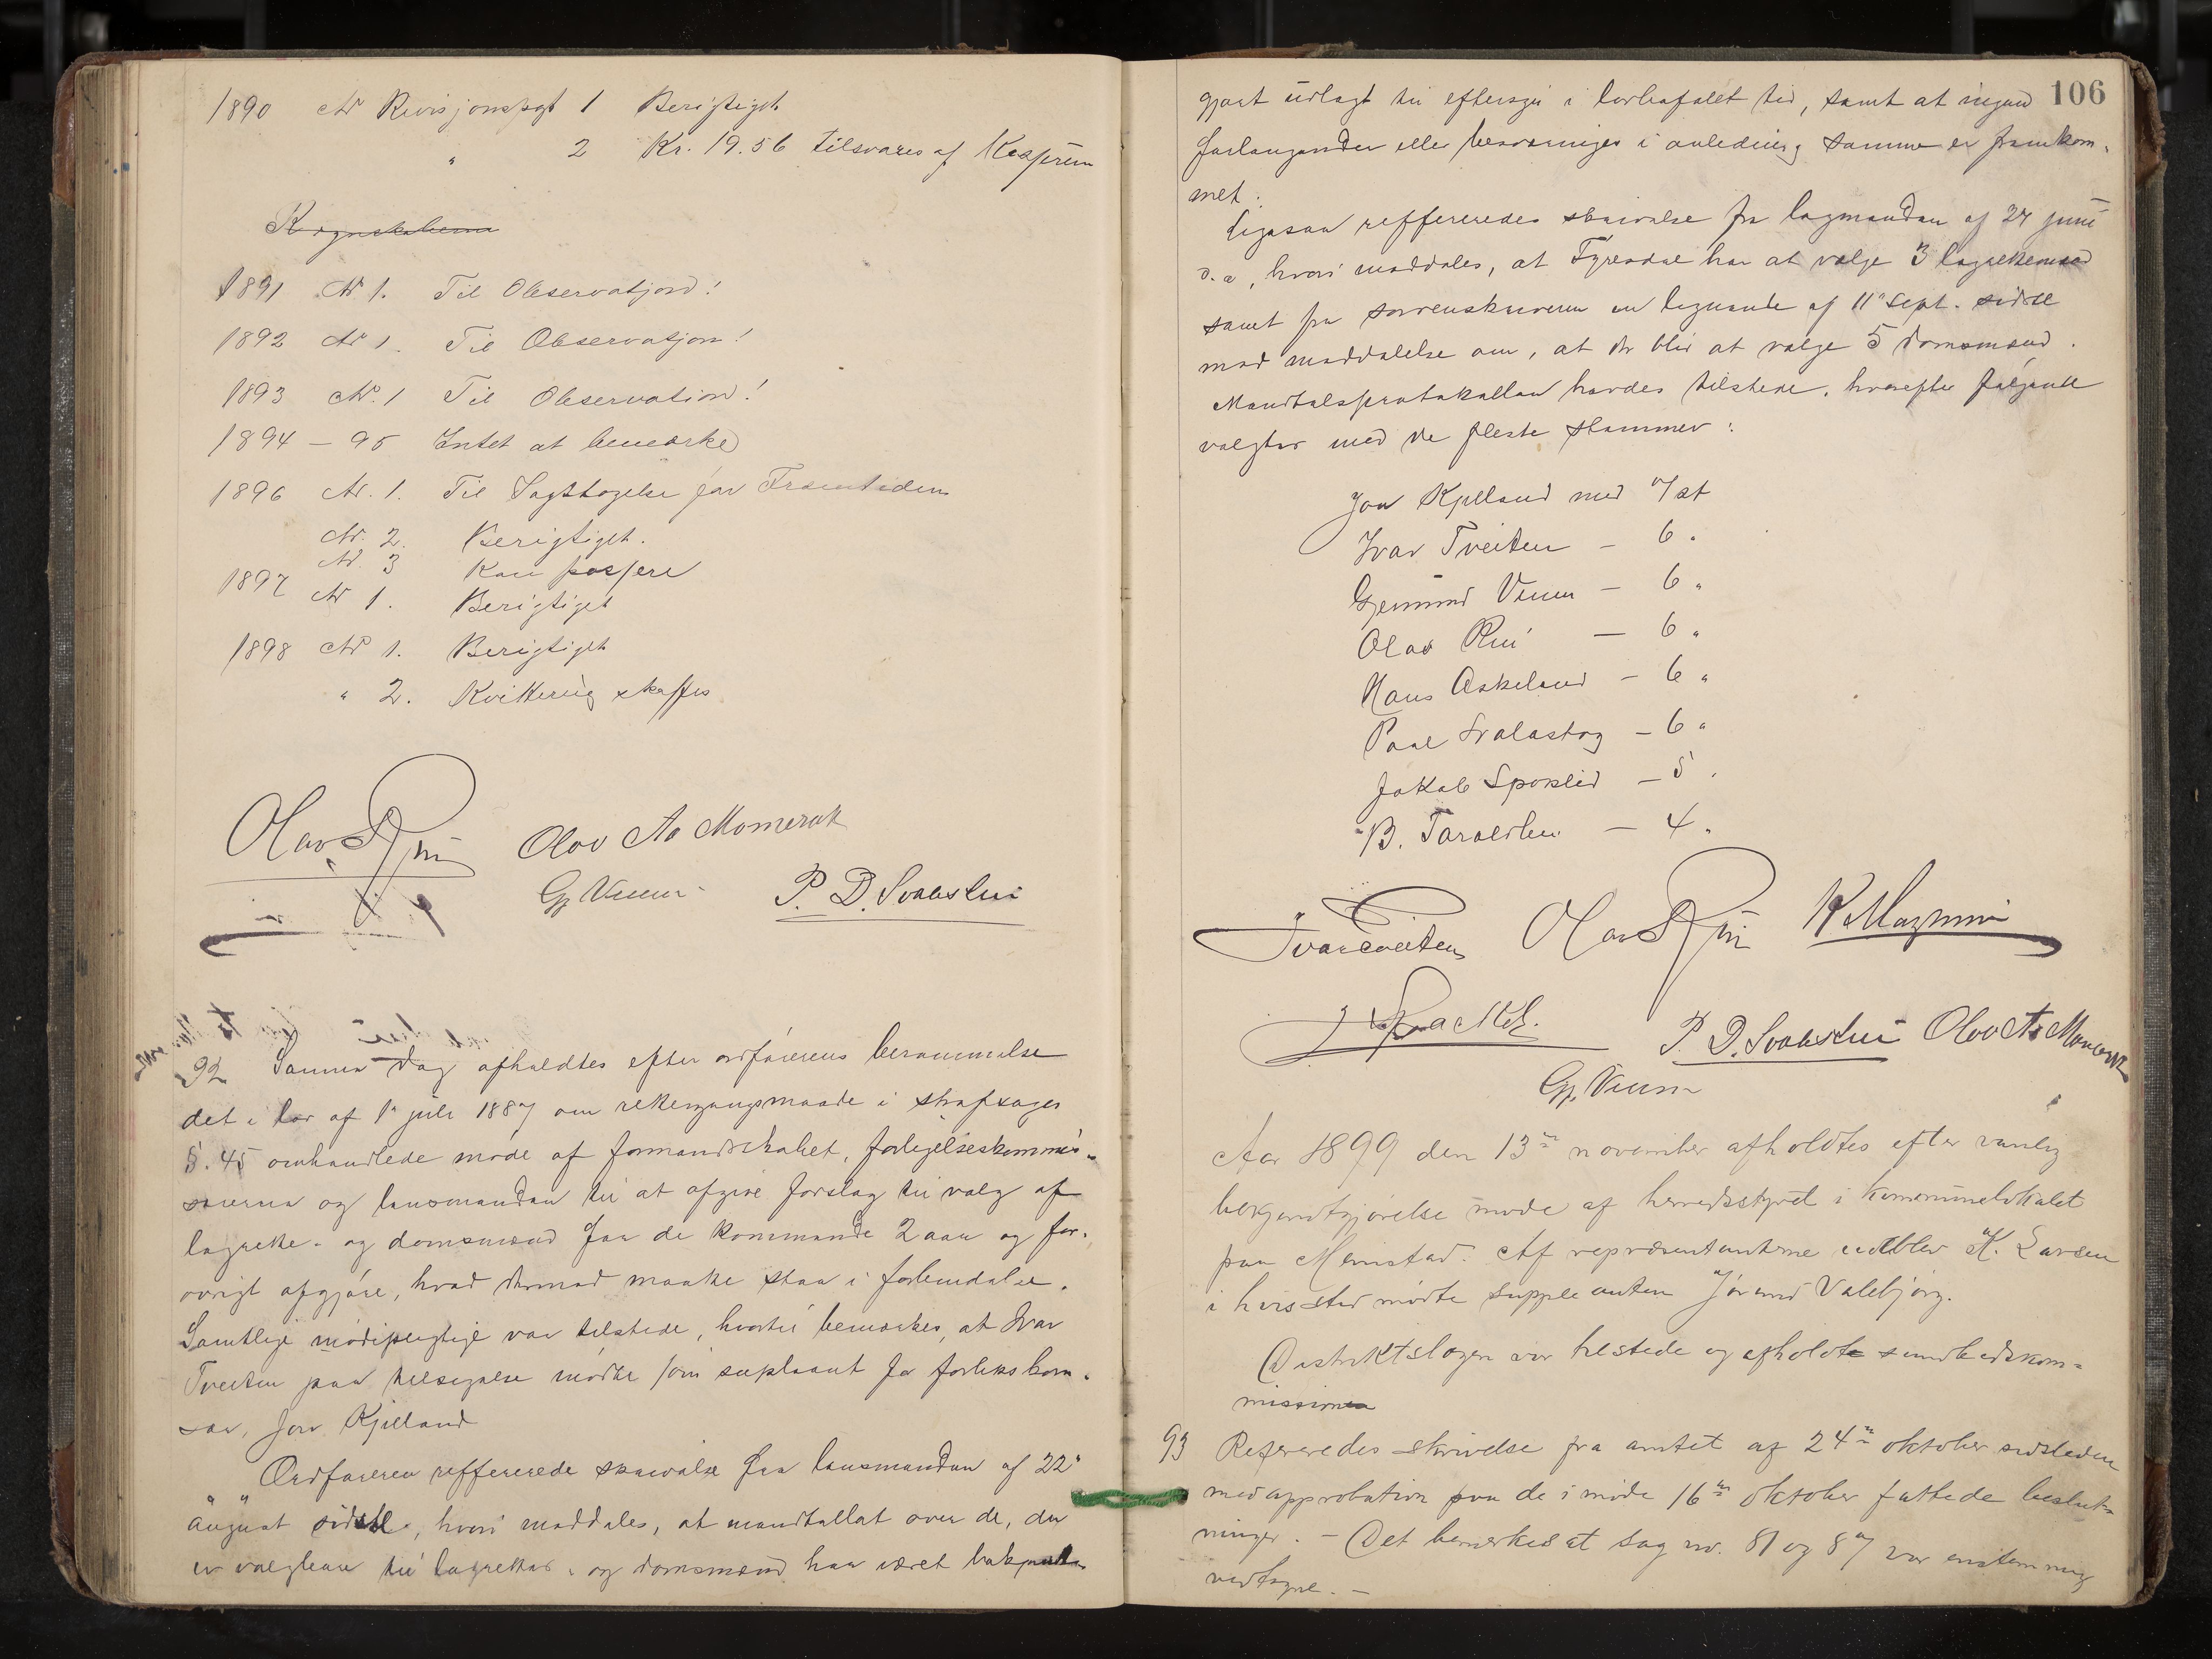 1890 No Revisjonspgt 1 Berigtiget
" 2 Kr. 19.56 tilsvares af Kasseren
Regnskaberne
1891 No 1. Til Observatjon!
1892 No 1. Til Observatjon!
1893 No. 1 Til Observation!
1894 – 95 Intet at bemærke
1896 No. 1. Til Iagttagelse for Fremtiden
No. 2. Berigtiget.
No. 3 Kan passere
1897 No 1. Berigtiget
1898 No 1. Berigtiget
" 2. Kvittering skaffes
Olav Rui Olav As Momerak
Gj Vinum P. D. Svalastui
92 Samme dag afholdtes efter ordførerens berammelse
det i lov af 1ste juli 1887 om rettergangsmaade i strafsager
§. 45 omhandlede møde af formandskabet, forligelseskommis-
særerne og lensmanden til at afgive forslag til valg af
lagrette- og domsmænd for de kommende 2 aar og for-
øvrigt afgjøre, hvad dermed maatte staa i forbindelse.
Samtlige mødepligtige var tilstede, hvortil bemærkes, at Ivar
Tveiten paa tilsigelse mødte som supleant for forlikskom-
sær, Jon Kjilland
Ordføreren reffererede skrivelse fra lensmanden af 22"
august sidstl., hvori meddeles, at mandtallet over de, der
er valgbare til lagrettes- og domsmænd har været
106
gjort udlagt til eftersyn i lovbefalet tid, samt at ingen
forlangender eller besværinger i anledning samme er fremkom-
met.
Ligesaa reffereredes skrivelse fra lagmanden af 24 juni
d.a, hvori meddeles, at Fyresdal har at vælge 3 lagrettemænd
samt fra sorenskriveren en lignende af 11" Sept. sidstl
med meddelelse om, at der blir at vælge 5 domsmænd.
Mandtalsprotokollen havdes tilstede, hvorefter følgende
valgtes med de fleste stemmer:
Jon Kjilland med 7 st
Ivar Tveiten – 6 "
Gjermund Vinum – 6 "
Olav Rui – 6 "
Hans Askeland – 6 "
Paal Svalastog – 6 "
Jakob Spokslid – 5 "
B. Taraldlien – 4 "
Ivar Tveiten Olav Rui
P. D. Svalastui Olav As Momerak
Gj. Vinum
Aar 1899 den 13de november afholdtes efter vanlig
bekjendtgjørelse møde af herredsstyret i kommunelokalet
paa Mennstad. Af repræsentanterne udeblev K. Larsen
i hvis sted mødte suppleanten Jørund Valebjørg.
Distriktslægen var tilstede og afholdte sundhedskom-
mission
93 Refereredes skrivelse fra amtet af 24de oktober sidstleden
med approbation paa de i møde 16de oktober fattede beslut-
ninger. – Det bemerkes at sag no. 81 og 87 var enstemmig
vedtagne. –